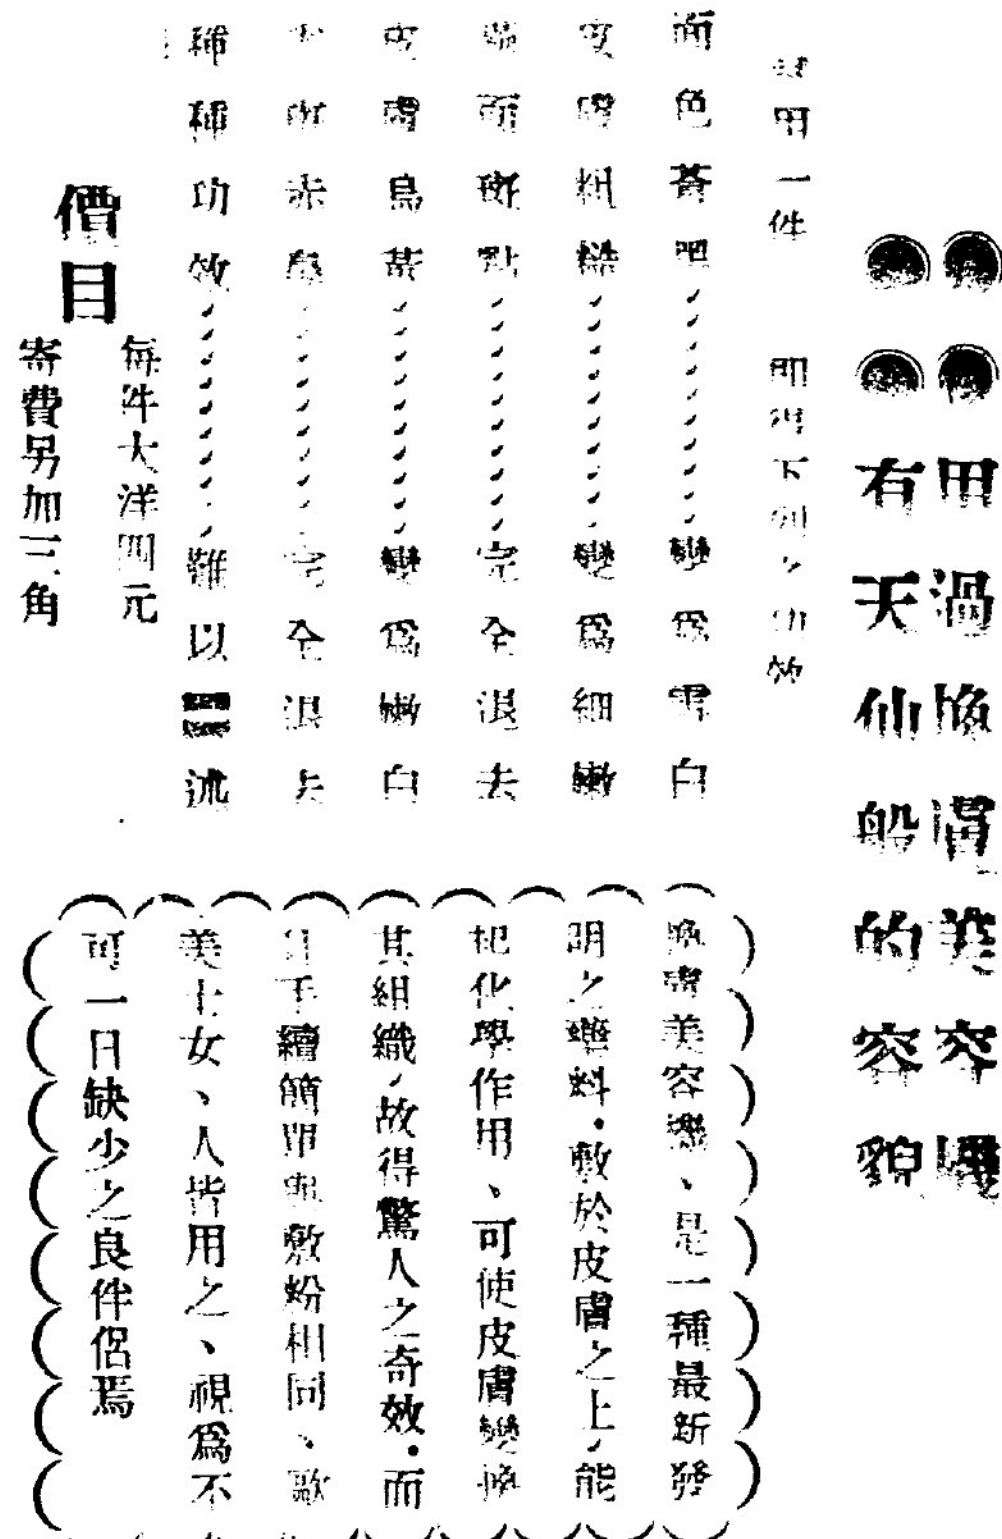 用過換膚美容機
有天仙般的容貌
試用一件 即得下列之功效
面色蒼黑、、、、、、、、、、變爲雪白
皮膚粗糙、、、、、、、、、、變爲細嫩
滿面斑點、、、、、、、、、、完全退去
皮膚烏黃、、、、、、、、、、變爲嫩白
赤鼻、、、、、、、、、、完全退去
種種功效、、、、、、、、、、難以述
價目
每件大洋四元
寄費另加三角
換膚美容機、是一種最新發
明之藥料．敷於皮膚之上、能
起化學作用、可使皮膚變換
其組織、故得驚人之奇效．而
且手續簡單與敷粉相同、歐
美士女、人皆用之、視爲不
可一日缺少之良伴侶焉